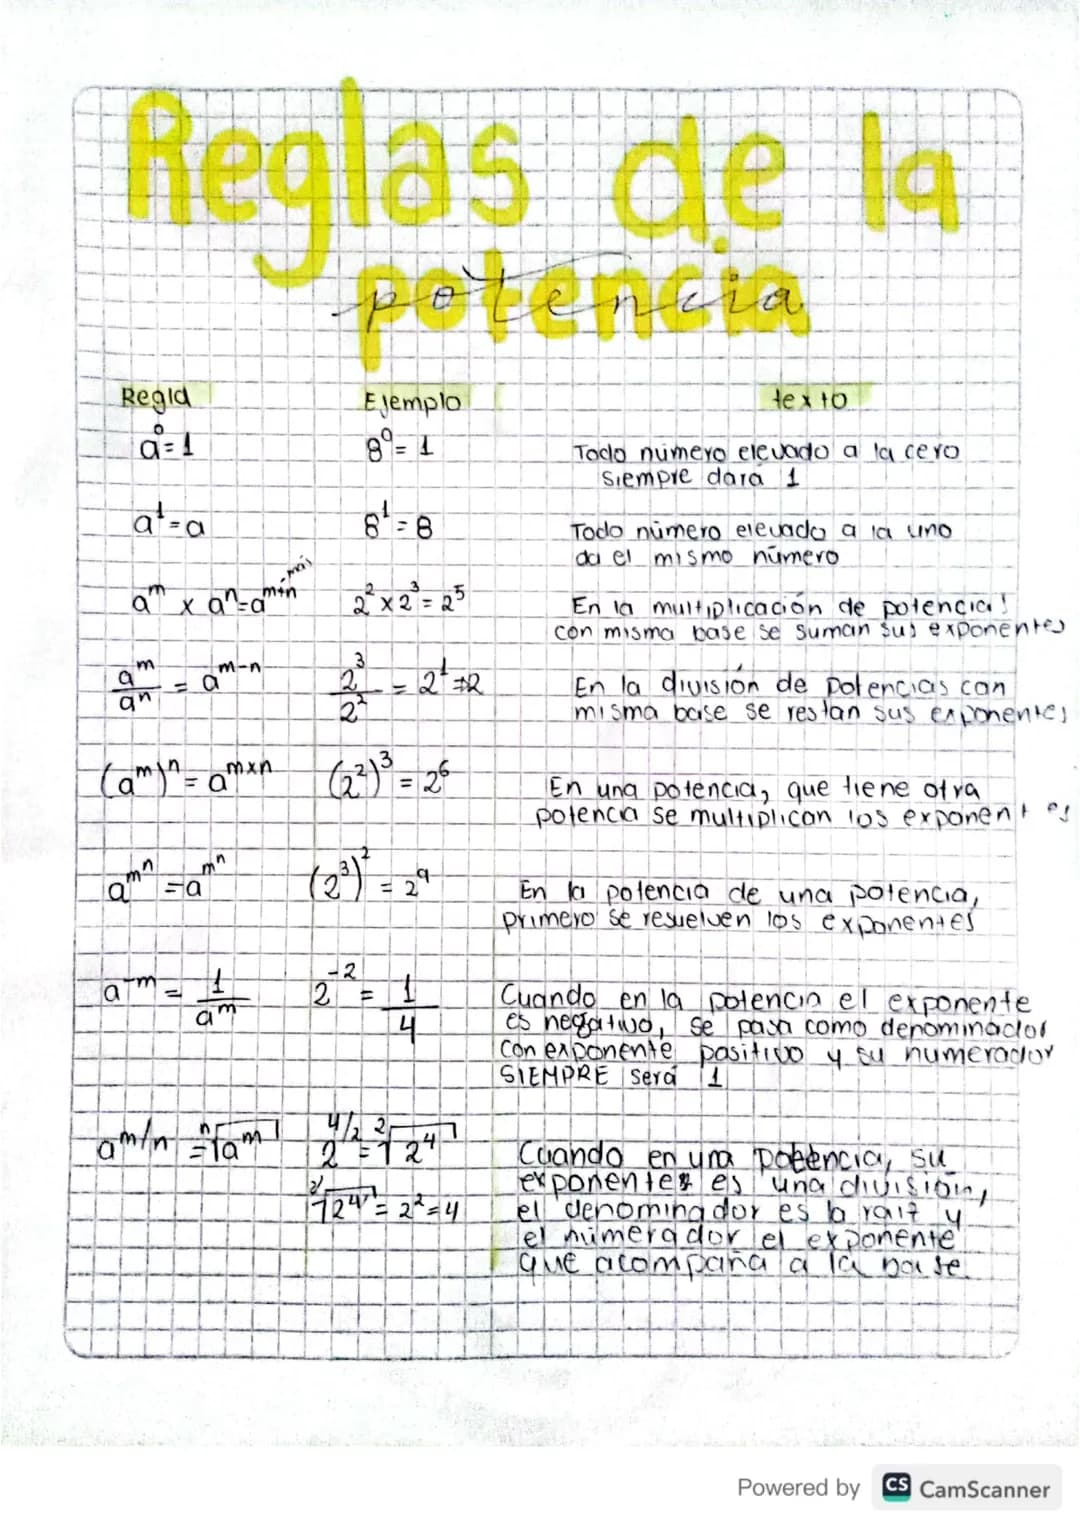 Reglas de la
potencia
Regla Ejemplo texto
a⁰=1 8⁰=1 Todo número elevado a la cero
siempre dará 1
a¹=a 8¹=8 Todo número elevado a la uno
da el mismo número
más
aᵐ x aⁿ=aᵐ⁺ⁿ 2²x2³=2⁵ En la multiplicación de potencias
con misma base se suman sus exponentes
aᵐ/aⁿ = aᵐ⁻ⁿ 2³/2² = 2¹⇒2 En la división de potencias con
misma base se restan sus exponentes
(aᵐ)ⁿ=aᵐˣⁿ (2²)³=2⁶ En una potencia, que tiene otra
potencia se multiplican los exponentes
a^mⁿ=a^mⁿ (2³)²=2⁹ En la potencia de una potencia,
primero se resuelven los exponentes
a⁻ᵐ=1/aᵐ 2⁻²=1/4 Cuando en la potencia el exponente
es negativo, se pasa como denominador
con exponente positivo y su numerador
SIEMPRE será 1
a^m/n=ⁿ√aᵐ 2^4/2=²√2⁴ Cuando en una potencia, su
exponente es una división,
²√2⁴=2²=4 el denominador es la raíz y
el númerador el exponente
que acompaña a la base.
Powered by CS CamScanner